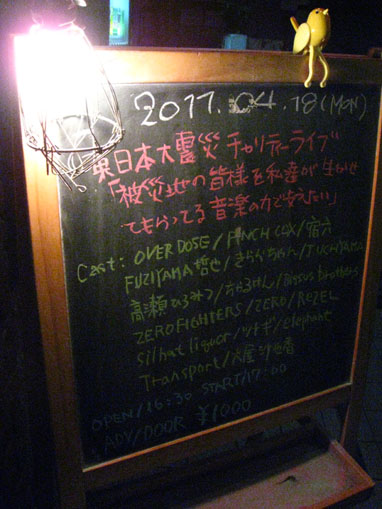 2011.04.18(MON)
東日本大震災 チャリティーライブ
「被災地の皆様を私達が生かせ
てもらってる音楽の力で支えたい」
Cast: OVER DOSE / /宿六
FUZIYAMA 哲也/きららちゃん/
高瀬ひろみつ/ brothers
ZERO FIGHTERS/ZERO/REZEL
Silhat liquor/ツナギ/elephant
Transport/
OPEN/16:30 START/17:00
ADV/DOOR ¥1000